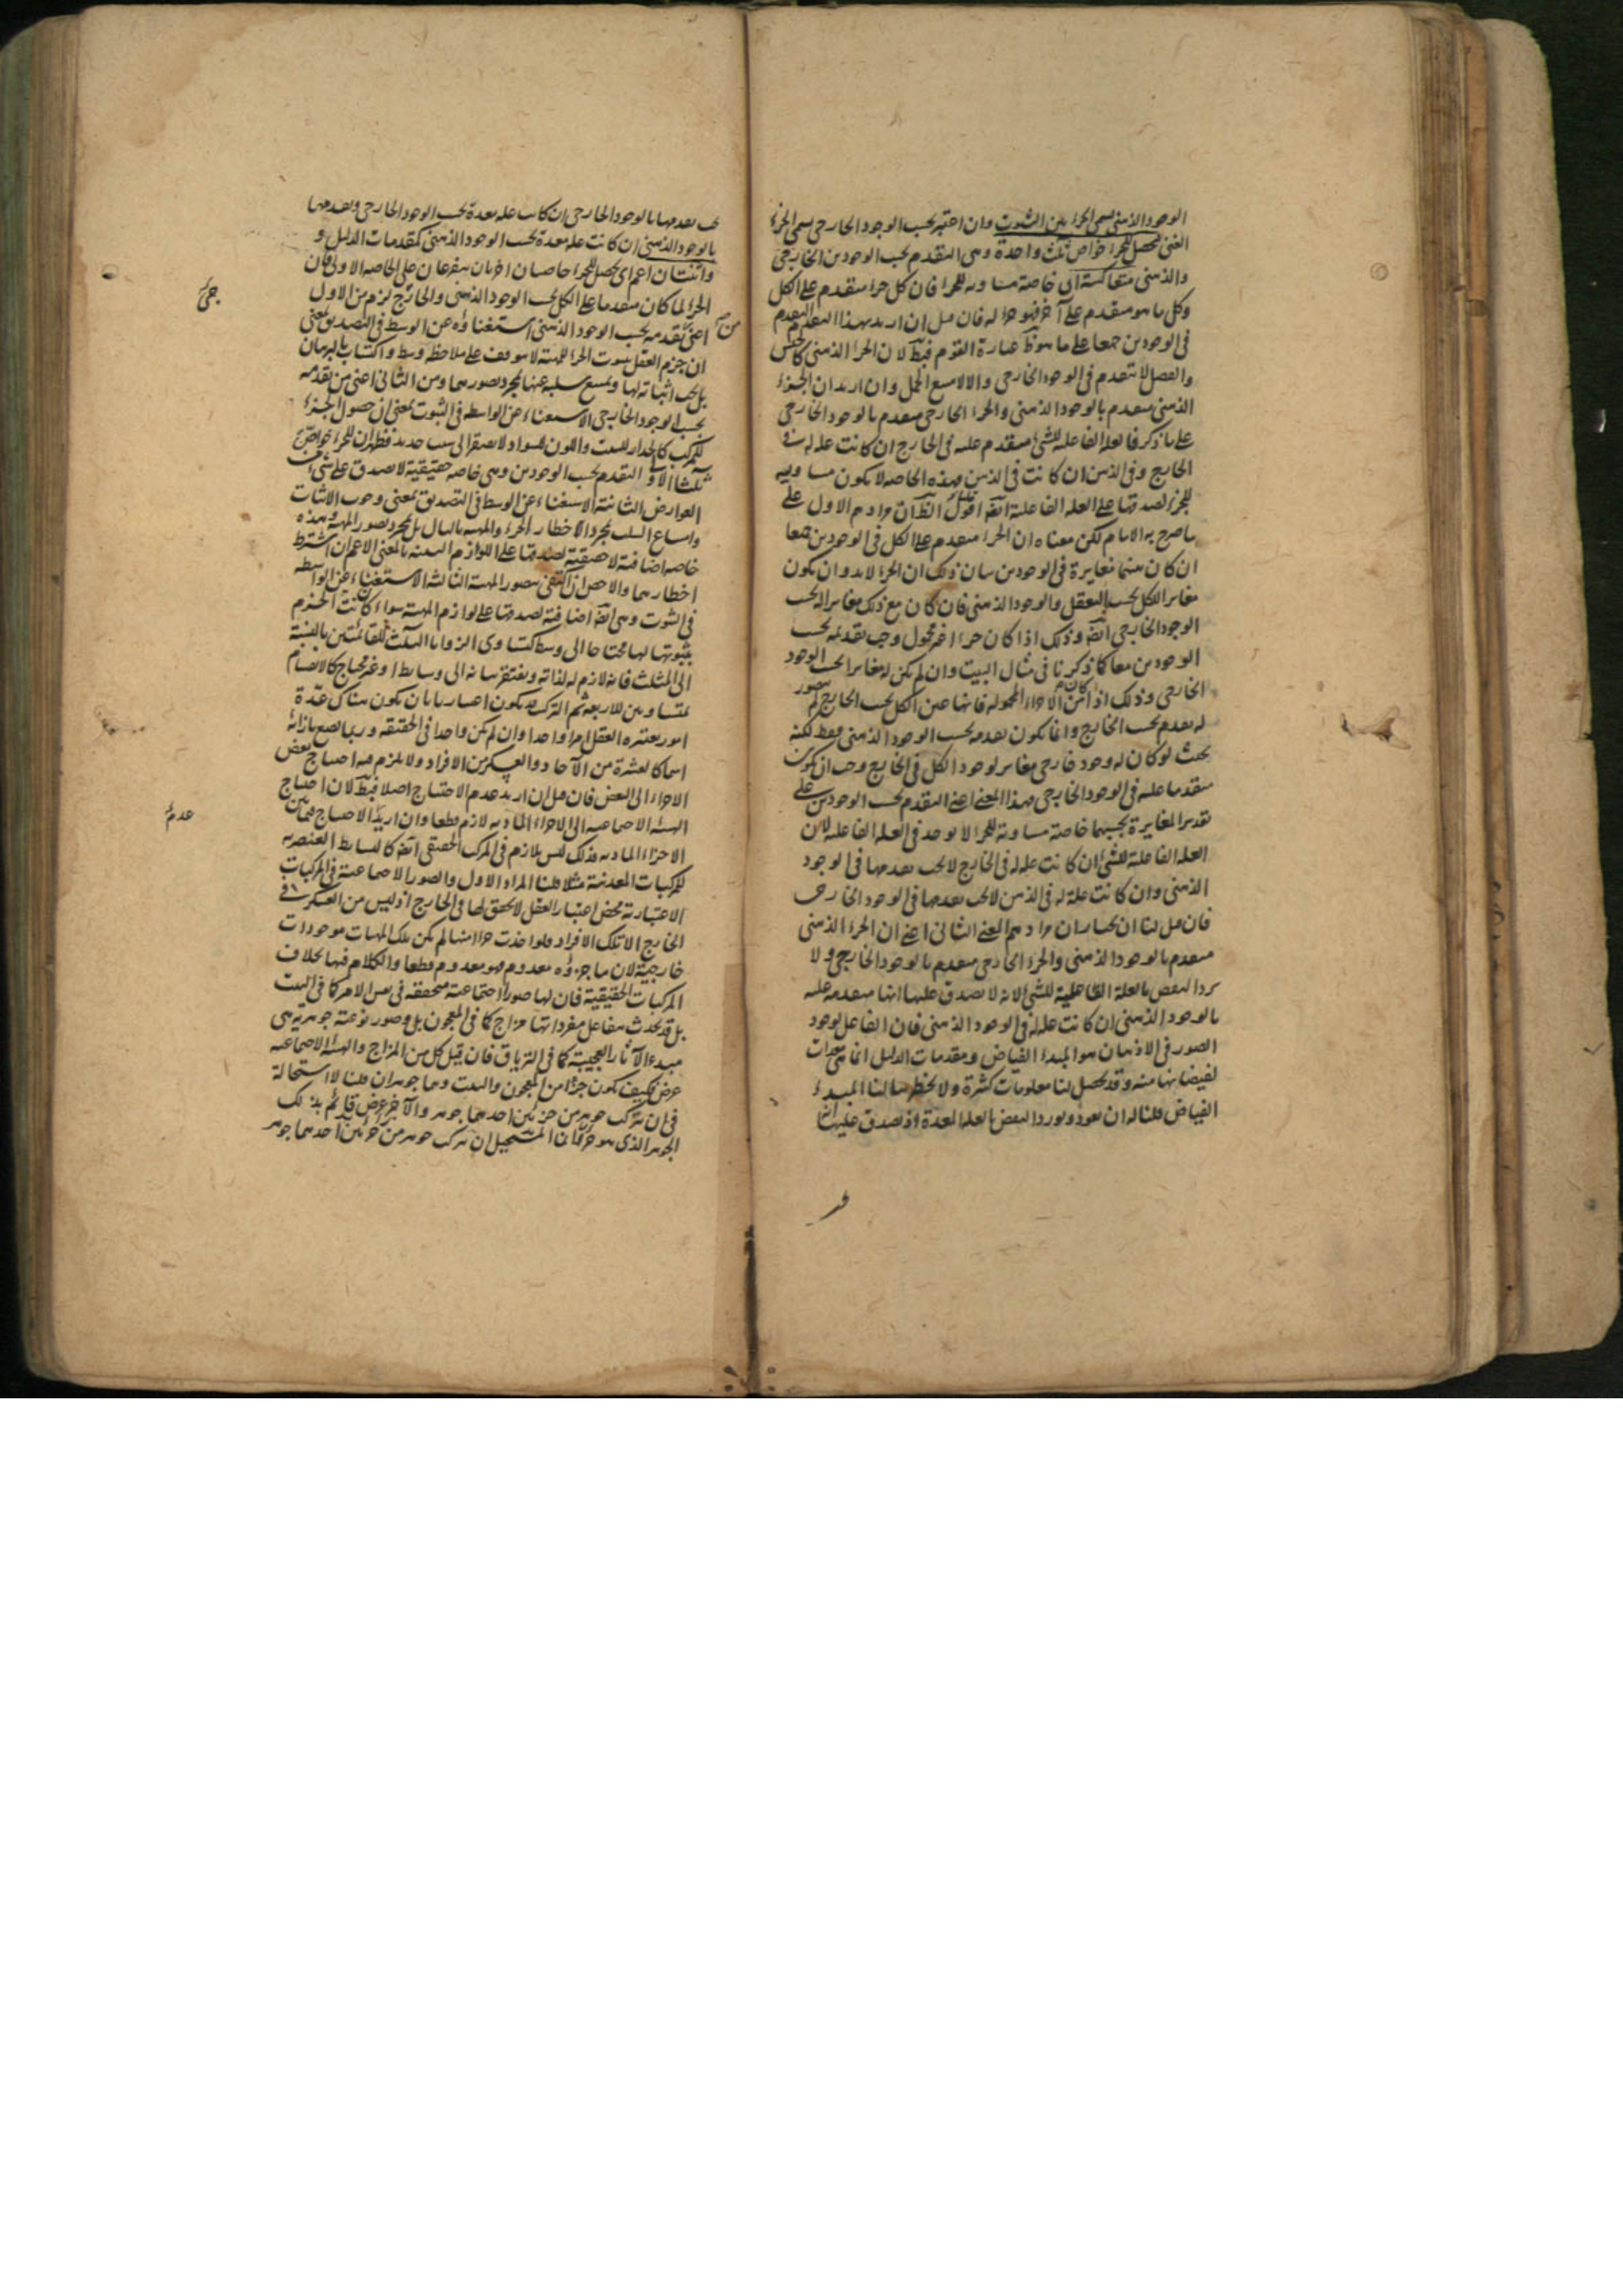 الوجود الذهني يسمى الجزء بين الثبوت وان اعتبر بحسب الوجود الخارجي يسمى الجزء
الغني فحصل للجزء خواص ثلث واحدة وهي التقدم بحسب الوجودين الخارجي
والذهني متعاكسة اي خاصة مساوية للجزء فان كل جزء متقدم على الكل
وكل ما هو متقدم على آخر فهو جزء له فان قيل ان اريد بهذا التقدم التقدم
في الوجودين جمعا على ما هو ظ عبارة القوم فبط لان الجزء الذهني كالجنس
والفصل لا يتقدم في الوجود الخارجي والا لامتنع الحمل وان اريد ان الجزء
الذهني متقدم بالوجود الذهني والجزء الخارجي متقدم بالوجود الخارجي
على ما ذكر فالعلة الفاعلة للشئ متقدم عليه في الخارج ان كانت علة له في
الخارج وفي الذهن ان كانت في الذهن فهذه الخاصة لا يكون مساوية
للجزء لصدقها على العلة الفاعلية ايضا اقول الظ ان مرادهم الاول على
ما صرح به الامام لكن معناه ان الجزء متقدم على الكل في الوجودين جمعا
ان كان بينهما مغايرة في الوجودين بيان ذلك ان الجزء لا بد وان يكون
مغاير الكل بحسب التعقل والوجود الذهني فان كان مع ذلك مغايرا له بحسب
الوجود الخارجي ايضا وذلك اذا كان جزءا غير محمول وجب تقدمه بحسب
الوجودين معا كما ذكرنا في مثال البيت وان لم يكن له مغايرا بحسب الوجود
الخارجي وذلك اذا كان من الاجزاء المحمولة فانها عين الكل بحسب الخارج لم يتصور
له تقدم بحسب الخارج وانما يكون تقدمه بحسب الوجود الذهني فقط لكنه
بحيث لو كان له وجود خارجي مغاير لوجود الكل في الخارج وجب ان يكون
متقدما عليه في الوجود الخارجي فهذا المعنى اعني التقدم بحسب الوجودين على
تقدير المغايرة بحسبهما خاصة مساوية للجزء لا يوجد في العلة الفاعلة لان
العلة الفاعلة للشئ ان كانت علة له في الخارج لا يجب تقدمها في الوجود
الذهني وان كانت علة له في الذهن لا يجب تقدمها في الوجود الخارجي
فان قيل لنا ان نختار ان مرادهم المعنى الثاني اعني ان الجزء الذهني
متقدم بالوجود الذهني والجزء الخارجي متقدم بالوجود الخارجي ولا
يرد النقض بالعلة الفاعلية للشئ لانه لا يصدق عليها انها متقدمة عليه
بالوجود الذهني ان كانت علة له في الوجود الذهني فان الفاعل لوجود
الصور في الاذهان هو المبدء الفياض ومقدمات الدليل انما هي معدات
لفيضانها منه وقد يحصل لنا معلومات كثيرة ولا يخطر ببالنا المبدء
الفياض قلنا له ان يعود ويورد النقض بالعلة المعدة اذ يصدق عليها انها
يجب تقدمها بالوجود الخارجي ان كانت علة معدة بحسب الوجود الخارجي وتقدمها
بالوجود الذهني ان كانت علة معدة بحسب الوجود الذهني كمقدمات الدليل و
واثنتان اعم اي يحصل للجزء خاصتان اخريان يتفرعان على الخاصة الاولى فان
الجزء لما كان متقدما على الكل بحسب الوجود الذهني والخارجي لزم من الاول
اعني تقدمه بحسب الوجود الذهني استغناؤه عن الوسط في التصديق بمعنى
ان جزم العقل بثبوت الجزء للمهية لا يتوقف على ملاحظة وسط واكتساب بالبرهان
بل يجب اثباته لها ويمتنع سلبه عنها بمجرد تصورهما ومن الثاني اعني من تقدمه
بحسب الوجود الخارجي الاستغناء عن الواسطة في الثبوت بمعنى ان حصول الجزء
للمركب كالجدار للبيت واللون للسواد لا يفتقر الى سبب جديد فظهر ان للجزء خواص
ثلثا الاول التقدم بحسب الوجودين وهي خاصة حقيقية لا تصدق على شئ من
العوارض الثانية الاستغناء عن الوسط في التصديق بمعنى وجوب الاثبات
وامتناع السلب بمجرد الاخطار الجزء والمهية بالبال بل بمجرد تصور المهية وهذه
خاصة اضافية لا حقيقية لصدقها على اللوازم البينة بالمعنى الاعم ان اشترط
اخطارهما والاخص ان اكتفى بتصور المهية الثالثة الاستغناء عن الواسطة
في الثبوت وهي ايضا اضافية لصدقها على لوازم المهية سواء كانت الجزم
بثبوتها لها محتاجا الى وسط كتساوي الزوايا الثلث للقائمتين بالنسبة
الى المثلث فانه لازم له لذاته ويفتقر بيانه الى وسايط او غير محتاج كالانقسام
بمتساويين للاربعة ثم التركيب قد يكون اعتباريا بان يكون هناك عدة
امور يعتبره العقل امرا واحدا وان لم يكن واحدا في الحقيقة وربما يضع بازائه
اسما كالعشرة من الآحاد والعسكر من الافراد ولا يلزم فيه احتياج بعض
الاجزاء الى البعض فان قيل ان اريد عدم الاحتياج اصلا فبط لان احتياج
الهيئة الاجتماعية الى الاجزاء المادية لازم قطعا وان اريد الاحتياج فيما بين
الاجزاء المادية فذلك ليس بلازم في المركب الحقيقي ايضا كالبسايط العنصرية
للمركبات المعدنية مثلا قلنا المراد الاول والصور الاجتماعية في المركبات
الاعتبارية محض اعتبار العقل لا تحقق لها في الخارج اذ ليس من العسكر في
الخارج الا تلك الافراد فلو اخذت جزءا منها لم يكن تلك المهيات موجودات
خارجية لان ما جزؤه معدوم فهو معدوم قطعا والكلام فيها بخلاف
المركبات الحقيقية فان لها صورا اجتماعية متحققة في نفس الامر كما في البيت
بل قد يحدث بتفاعل مفرداتها مزاج كما في المعجون بل وصور نوعية جوهرية هي
مبدء الآثار العجيبة كما في الترياق فان قيل كل من المزاج والهيئة الاجتماعية
عرض فكيف يكون جزءا من المعجون والبيت وهما جوهران قلنا لا استحالة
في ان يتركب جوهر من جزئين احدهما جوهر والآخر عرض قائم بذلك
الجوهر الذي هو جزء فان المستحيل ان يتركب جوهر من جزئين احدهما جوهر